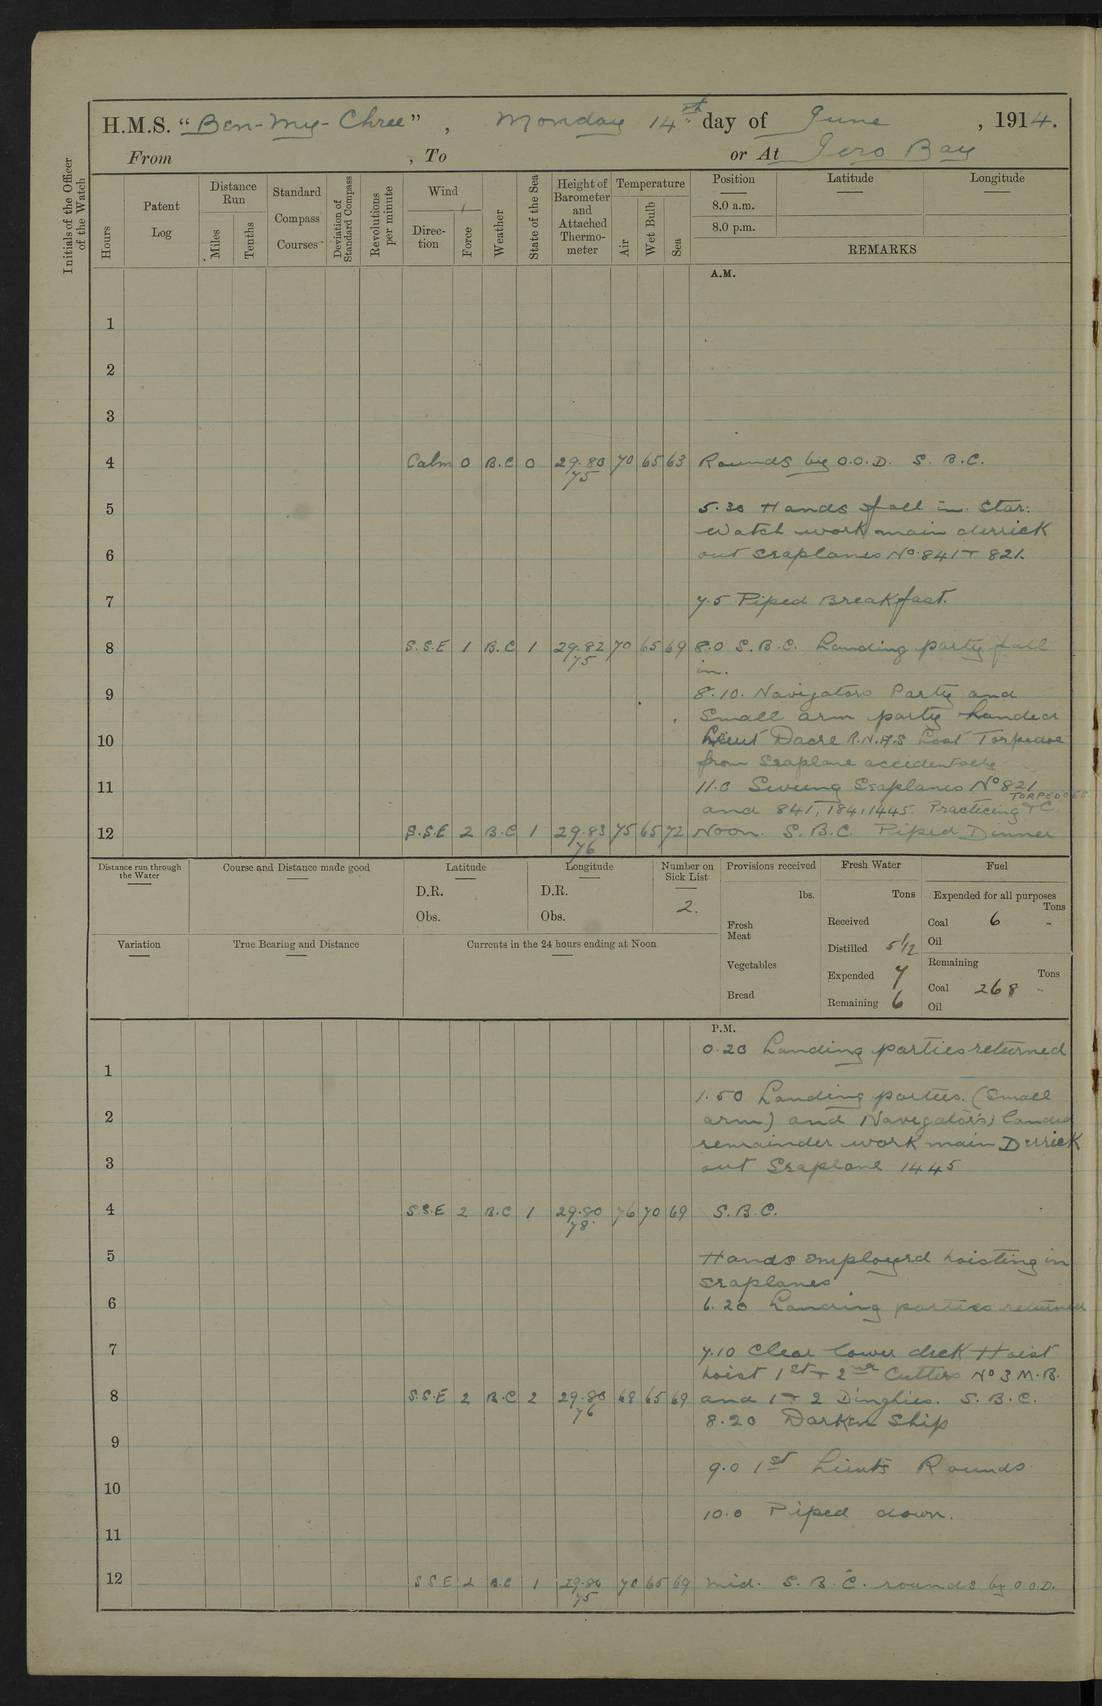 H.M.S. "Ben-my-Chree", Monday 14th day of June, 1914.
From , To or At Iero Bay
Initials of the Officer of the Watch
Hours
Patent Log
Distance Run
Miles
Tenths
Standard Compass Courses
Deviation of Standard Compass
Revolutions per minute
Wind
Direction
Force
Weather
State of the Sea
Height of Barometer and Attached Thermometer
Temperature
Air
Wet Bulb
Sea
Position Latitude Longitude
8.0 a.m.
8.0 p.m.
REMARKS
A.M.
1
2
3
4 Calm 0 B.C 0 29.80 75 70 65 63 Rounds by O.O.D. S.B.C.
5 5.30 Hands fall in. Star:
Watch work main derrick
6 out seaplanes No. 841 + 821.
7 7.5 Piped Breakfast.
8 S.S.E 1 B.C 1 29.82 75 70 65 69 8.0 S.B.C. Landing party fall
in.
9 8.10. Navigators Party and
Small arm party landed
10 Lieut Dacre R.N.A.S Lost Torpedoe
from seaplane accidentally
11 11.0 Swung Seaplanes No 821
and 841, 184, 1445. Practicing TORPEDOES + C
12 S.S.E 2 B.C 1 29.83 76 75 65 72 Noon. S.B.C. Piped Dinner
Distance run through the Water
Course and Distance made good
Latitude
D.R.
Obs.
Longitude
D.R.
Obs.
Number on Sick List
2.
Provisions received
lbs.
Fresh Meat
Vegetables
Bread
Fresh Water
Tons
Received
Distilled 5 1/12
Expended 7
Remaining 6
Fuel
Expended for all purposes
Tons
Coal 6 -
Oil
Remaining
Tons
Coal 268 -
Oil
Variation
True Bearing and Distance
Currents in the 24 hours ending at Noon
P.M.
0.20 Landing parties returned
1
1.50 Landing parties. (Small
2 arm) and Navigator's) landed
remainder work main Derrick
3 out Seaplane 1445
4 S.S.E 2 B.C 1 29.80 78 76 70 69 S.B.C.
5 Hands employed hoisting in
seaplanes
6 6.20 Landing parties returned
7 7.10 Clear lower deck Hoist
hoist 1st + 2nd Cutters No 3 M.B.
8 S.S.E 2 B.C 2 29.80 76 68 65 69 and 1 + 2 Dinghies. S.B.C.
8.20 Darken Ship
9
9.0 1st Lieut's Rounds
10
10.0 Piped down.
11
12 S.S.E 2 B.C 1 29.80 75 70 65 69 mid. S.B.C. rounds by O.O.D.